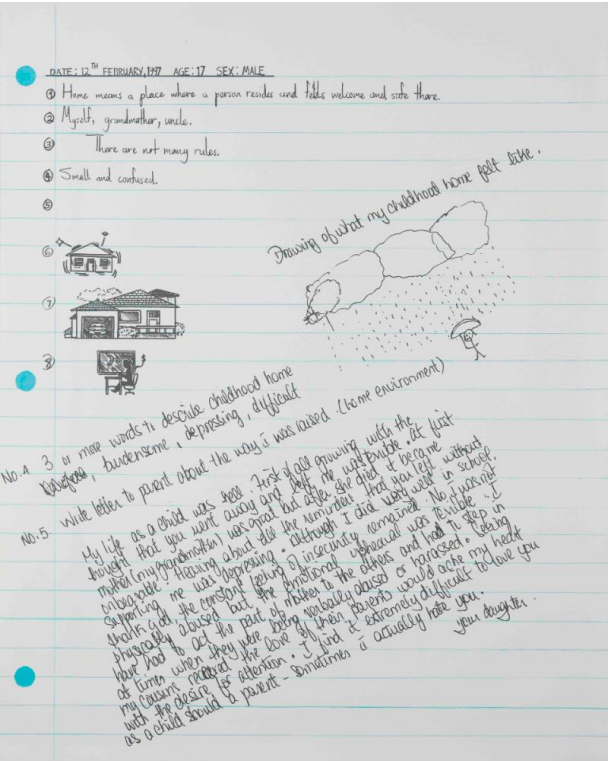 DATE: 12TH FEBRUARY, 1997 AGE: 17 SEX: MALE
① Home means a place where a person resides and feels welcome and safe there.
② Myself, grandmother, uncle.
③ There are not many rules.
④ Small and confused.
⑤
⑥
⑦
⑧
Drawing of what my childhood home felt like.
No.4 3 or more words to describe childhood home
burdensome, depressing, difficult
No.5. Write letter to parent about the way i was raised. (home environment)
My life as a child was hell. First of all growing with the
thought that you went away and left me was terrible. at first
mother (my grandmother) was great but after she died it became
unbearable. Hearing about all the reminders that you left without
supporting me was depressing. although I did very well in school
thanks God, the constant feeling of insecurity remained. No i was not
physically abused but the emotional upheaval was terrible. I
have had to act the part of mother to the others and had to step in
at times when they were being verbally abused or harassed. Seeing
my cousins received the love of their parents would ache my heart
with the desire for attention. I find it extremely difficult to love you
as a child should a parent - sometimes i actually hate you.
your daughter.